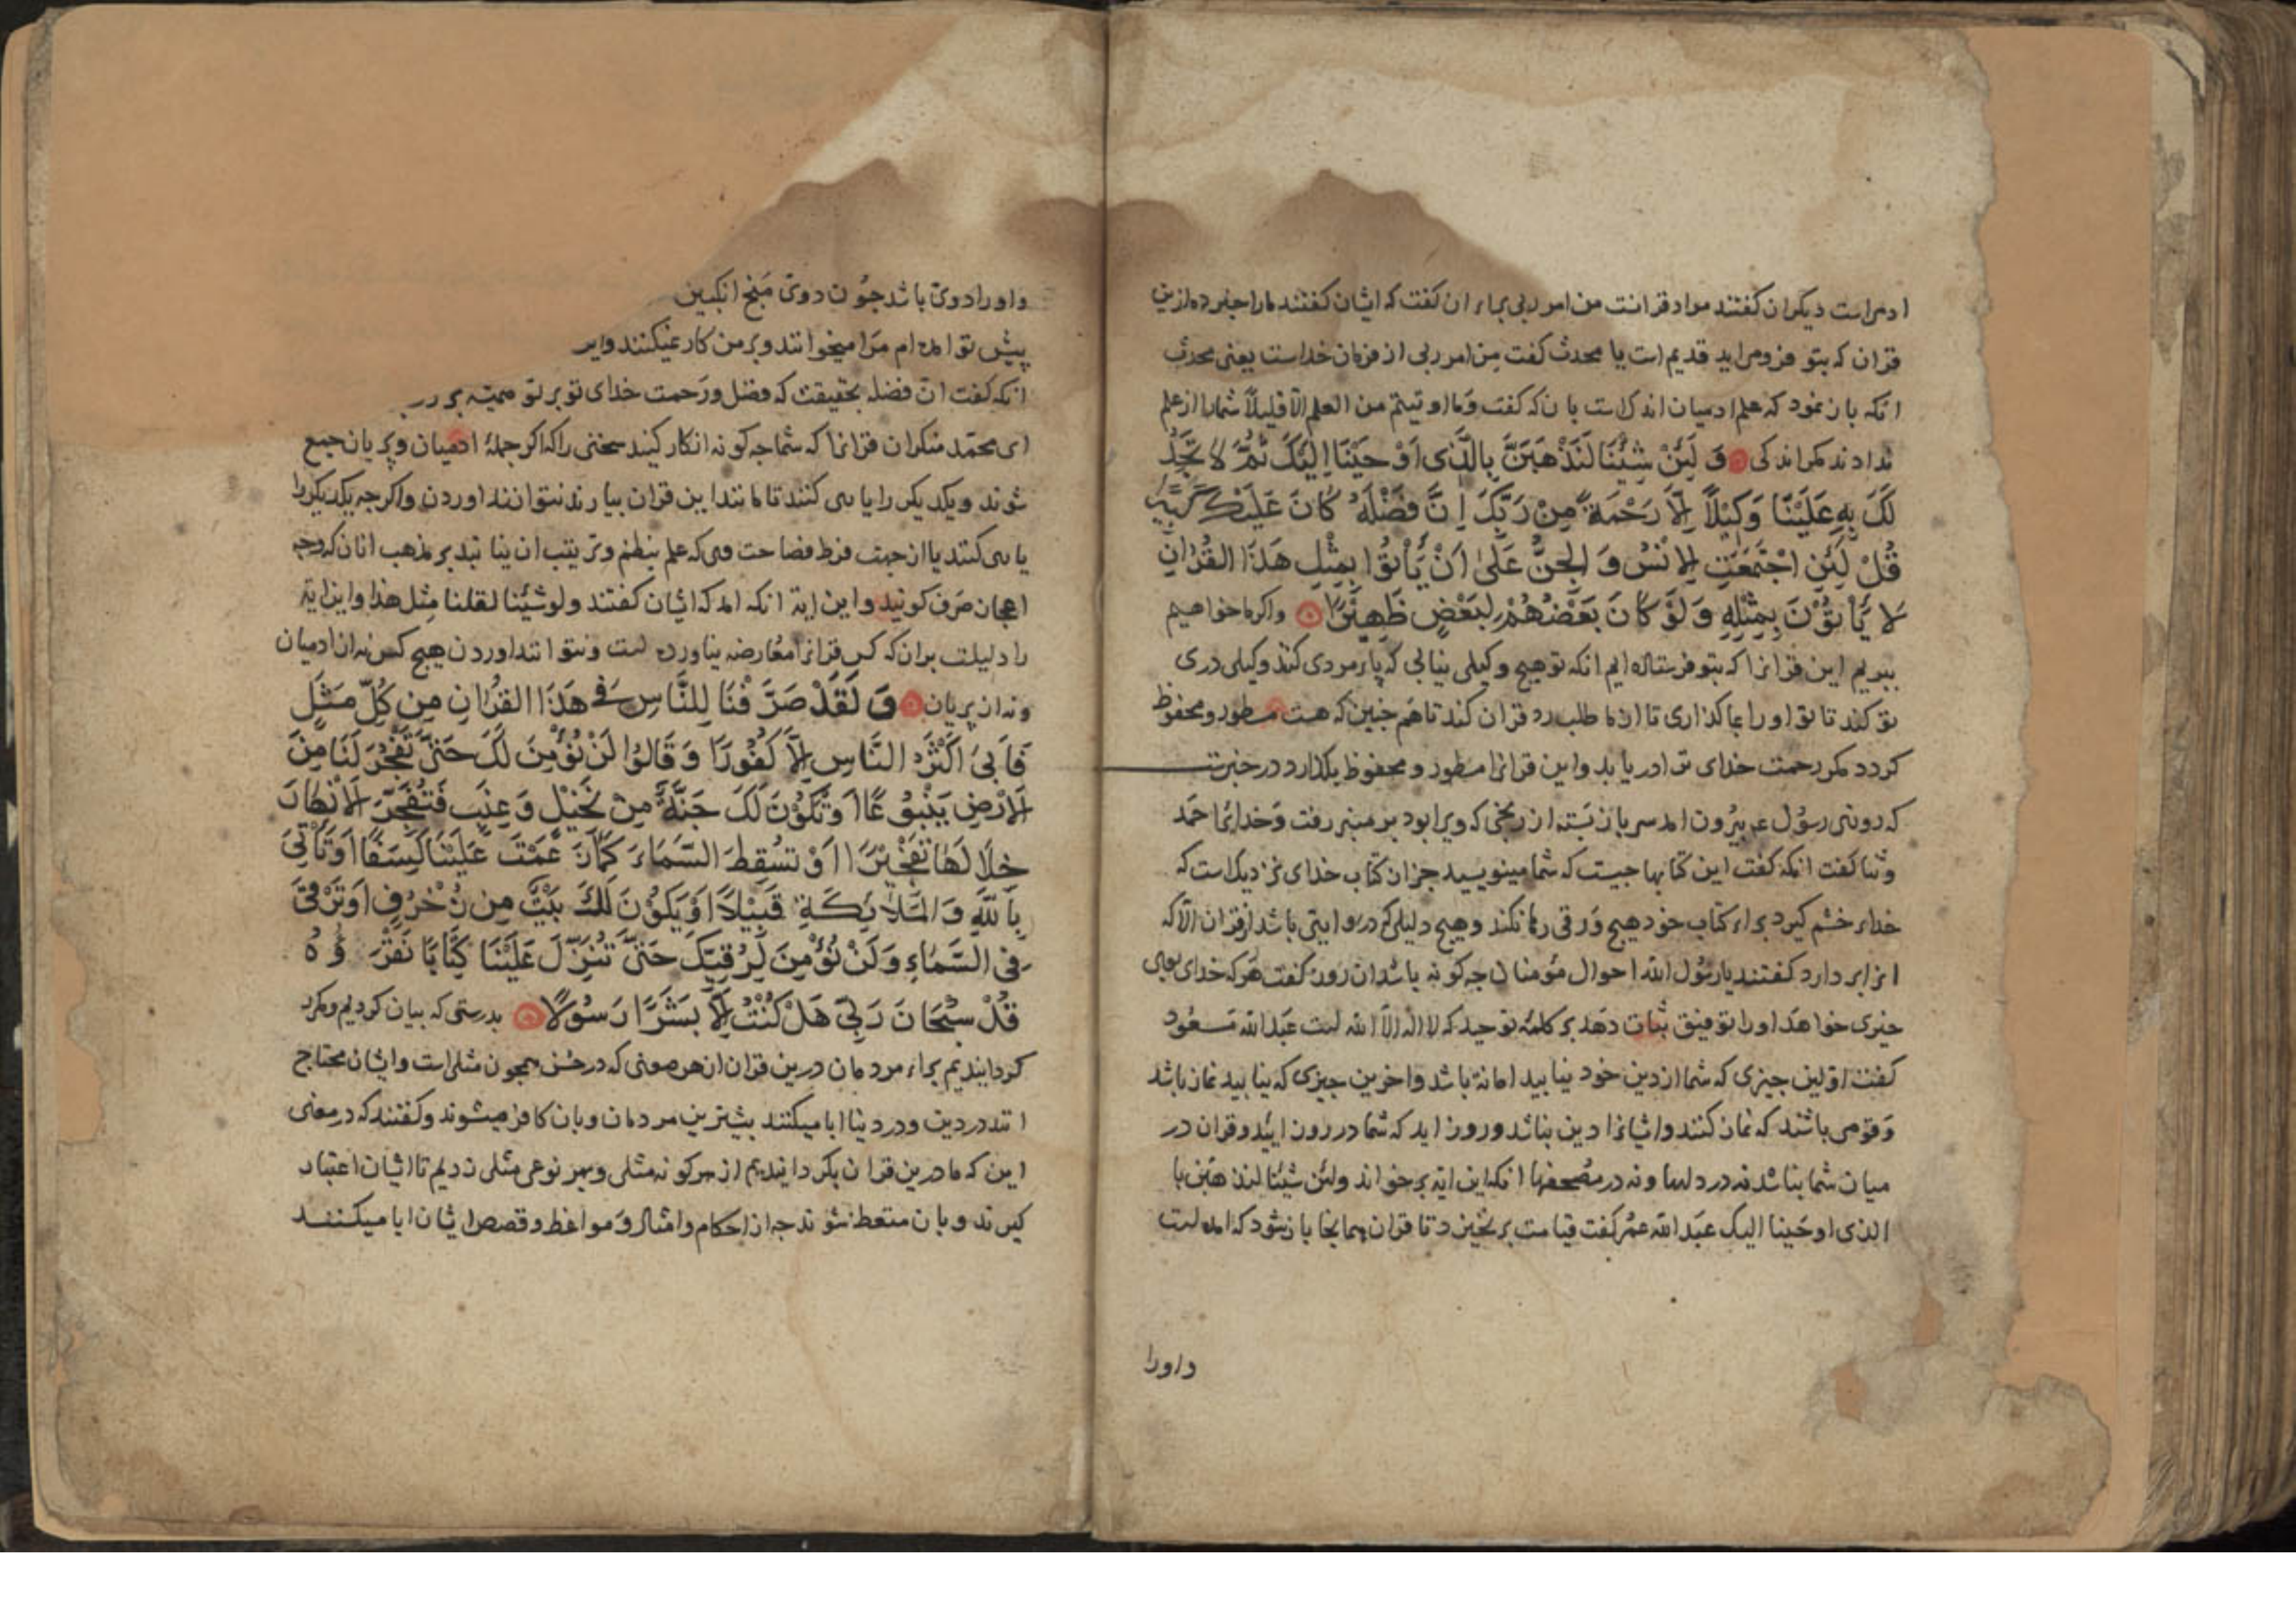 ادمی‌راست دیکران کفتند مراد قرانست من امر ربی برای ان کفت که ایشان کفتند مارا خبر ده ازین
قران که بتو فرومی‌اید قدیم است یا محدث کفت من امر ربی از فرمان خداست یعنی محدث
انکه باز نمود که علم ادمیان اندک است بانکه کفت وما اوتیتم من العلم الا قلیلاً شمارا از علم
نداد ند مکر اندکی وَ لَئِنْ شِئْنَا لَنَذْهَبَنَّ بِالَّذِی اَوْحَیْنَا اِلَیْکَ ثُمَّ لَا تَجِدُ
لَکَ بِهِ عَلَیْنَا وَکِیْلًا اِلَّا رَحْمَةً مِنْ رَبِّکَ اِنَّ فَضْلَهُ کَانَ عَلَیْکَ کَبِیْرًا
قُلْ لَئِنِ اجْتَمَعَتِ الْاِنْسُ وَ الْجِنُّ عَلٰی اَنْ یَّأْتُوْا بِمِثْلِ هَذَا القُرْاٰنِ
لَا یَأْتُوْنَ بِمِثْلِهِ وَ لَوْ کَانَ بَعْضُهُمْ لِبَعْضٍ ظَهِیْرًا واکر ما خواهیم
ببریم این قرانرا که بتو فرستاده ایم انکه تو هیچ وکیلی نیابی که پایمردی کند وکیلی دری
تو کند تا تو اورا بما کذاری تا از ما طلب رد قران کند تا هم چنین که هست مسطور و محفوظ
کردد مکر رحمت خدای ترا دریابد واین قرانرا مسطور و محفوظ بکذارد در خبرست
که روزی رسول ع بیرون امد سر باز بسته از رنجی که ویرا بود بر منبر رفت وَخدایرا حمد
وثنا کفت انکه کفت این کتابها چیست که شما مینویسید جز ان کتاب خدای نزدیک است که
خدای خشم کیرد برای کتاب خود هیچ وَرقی رها نکند وهیچ دلیلی که درو ایتی باشد از قران الا که
انرا بردارد کفتند یا رسُول الله احوال مؤمنان چه کونه باشد ان روز کفت هَر که خدای بوی
خیری خواهَد اورا توفیق ثبات دهَد بر کلمه توحید که لا اله الا الله است عبدالله مَسعُود
کفت اوّلین چیزی که شما از دین خود نیابید امانة باشد واخرین چیزی که نیابید نماز باشد
وَقومی باشند که نماز کنند وایشانرا دین نباشد وروز اید که شما در روز ایید وقران در
میان شما نباشد نه در دلها و نه در مصُحفها انکه این ایه بر خواند ولئن شِئنا لنذهبَن با
الذی اوحَینا الیک عبَدالله عمُر کفت قیامت بر نخیزد تا قران همانجا باز شود که امده است
واورا
واورا دویّ باشد چوُن دویّ مُنج انکبین
پیش تو امده ام مَرا میخوانند وبر من کار نمیکنند
انکه کفت انّ فضله بحقیقت که فضل ورَحمت خدای تو بر تو
ای محمّد منکران قرانرا که شما چه کونه انکار کنید سخنی را که اکر جملهٔ ادمیان وپریان جمع
شوند ویکدیکر را یاری کنند تا مانند این قران بیارند نتوانند اوردن واکر چه یکدیکر را
یاری کنند یا از جهت فرط فصاحت وی که علم بنظم وترتیب ان نباشد بر مذهب انان که وجه
اعجاز صَرف کویند واین ایة انکه امد که ایشان کفتند ولو شئنا لقلنا مِثل هذا واین ایة
را دلیلست بران که کس قرانرا معُارضه نیاورده است ونتوانند اوردن هیچ کس نه از ادمیان
ونه از پریان وَ لَقَدْ صَرَّفْنَا لِلنَّاسِ فِی هَذَا القُرْاٰنِ مِن کُلِّ مَثَلٍ
فَاَبیٰ اَکْثَرُ النَّاسِ اِلَّا کُفُوْرًا وَ قَالُوْا لَنْ نُؤْمِنَ لَکَ حَتّیٰ تَفْجُرَ لَنَا مِنَ
الْاَرْضِ یَنْبُوْعًا اَوْ تَکُوْنَ لَکَ جَنَّةٌ مِنْ نَخِیْلٍ وَ عِنَبٍ فَتُفَجِّرَ الْاَنْهَارَ
خِلَالَهَا تَفْجِیْرًا اَوْ تُسْقِطَ السَّمَاءَ کَمَا زَعَمْتَ عَلَیْنَا کِسَفًا اَوْ تَأْتِیَ
بِاللّهِ وَ الْمَلَائِکَةِ قَبِیْلًا اَوْ یَکُوْنَ لَکَ بَیْتٌ مِن زُخْرُفٍ اَوْ تَرْقیٰ
فِی السَّمَاءِ وَ لَنْ نُؤْمِنَ لِرُقِیِّکَ حَتّیٰ تُنَزِّلَ عَلَیْنَا کِتَابًا نَقْرَؤُهُ
قُلْ سُبْحَانَ رَبِّیْ هَلْ کُنْتُ اِلَّا بَشَرًا رَسُوْلًا بدرستی که بیان کردیم ومکرد
کردانیدیم برای مردمان درین قران از هر معنی که در حُسن همچون مثل است وایشان محتاج
اند در دین ودر دنیا ابا میکنند بیشترین مردمان وبان کافر میشوند وکفتند که در معنی
این که ما درین قران بکردانیدیم از هر کونه مثلی وبهر نوعی مثلی زدیم تا ایشان اعتبار
کیرند وبان متعظ شوند چه از احکام وامثال وَ مواعظ و قصص ایشان ابا میکنند